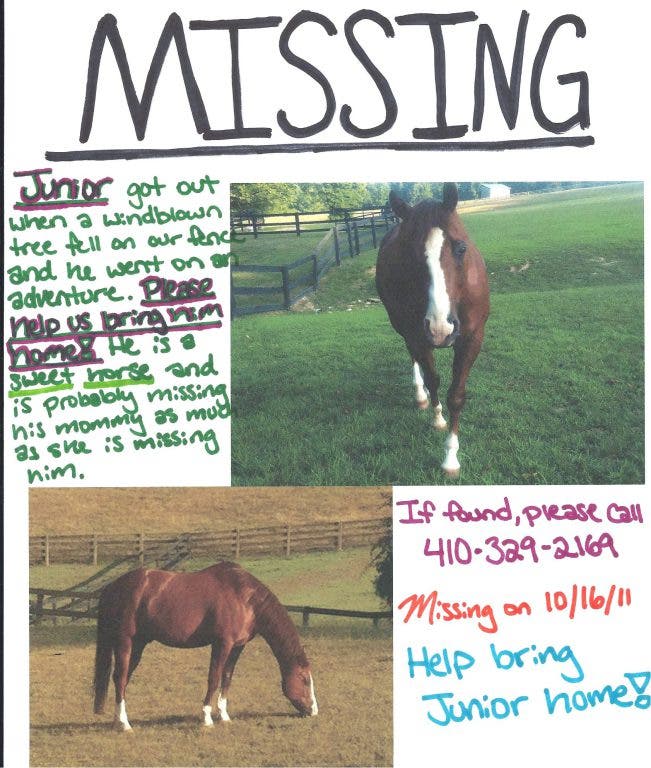 MISSING
Junior got out
when a windblown
tree fell on our fence
and he went on an
adventure. Please
help us bring him
home! He is a
sweet horse and
is probably missing
his mommy as much
as she is missing
him.
If found, please call
410-329-2169
Missing on 10/16/11
Help bring
Junior home!